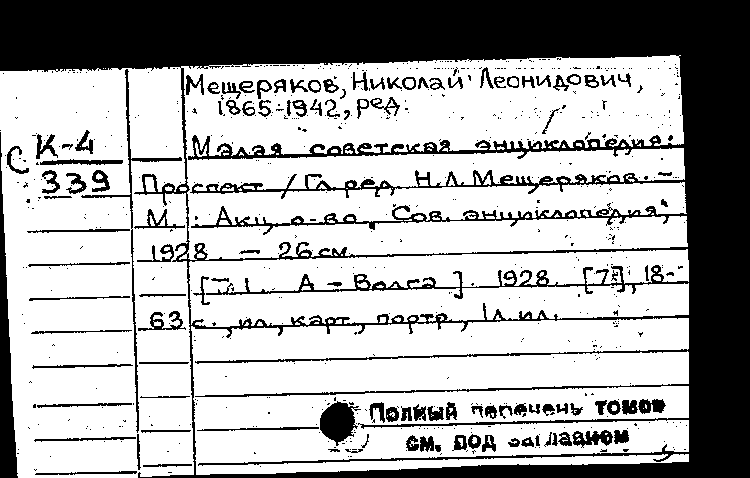 Мещеряков, Николай Леонидович,
1865-1942, ред.
К-4
Малая советская энциклопедия:
С 339
Проспект / Гл. ред. Н.Л. Мещеряков. —
М. : Акц. о-во „Сов. энциклопедия",
1928. — 26 см.
[Т. 1. А - Волга]. 1928. [7], 18-
63 с., ил., карт., портр., 1 л. ил.
Полный перечень томов
см. под заглавием